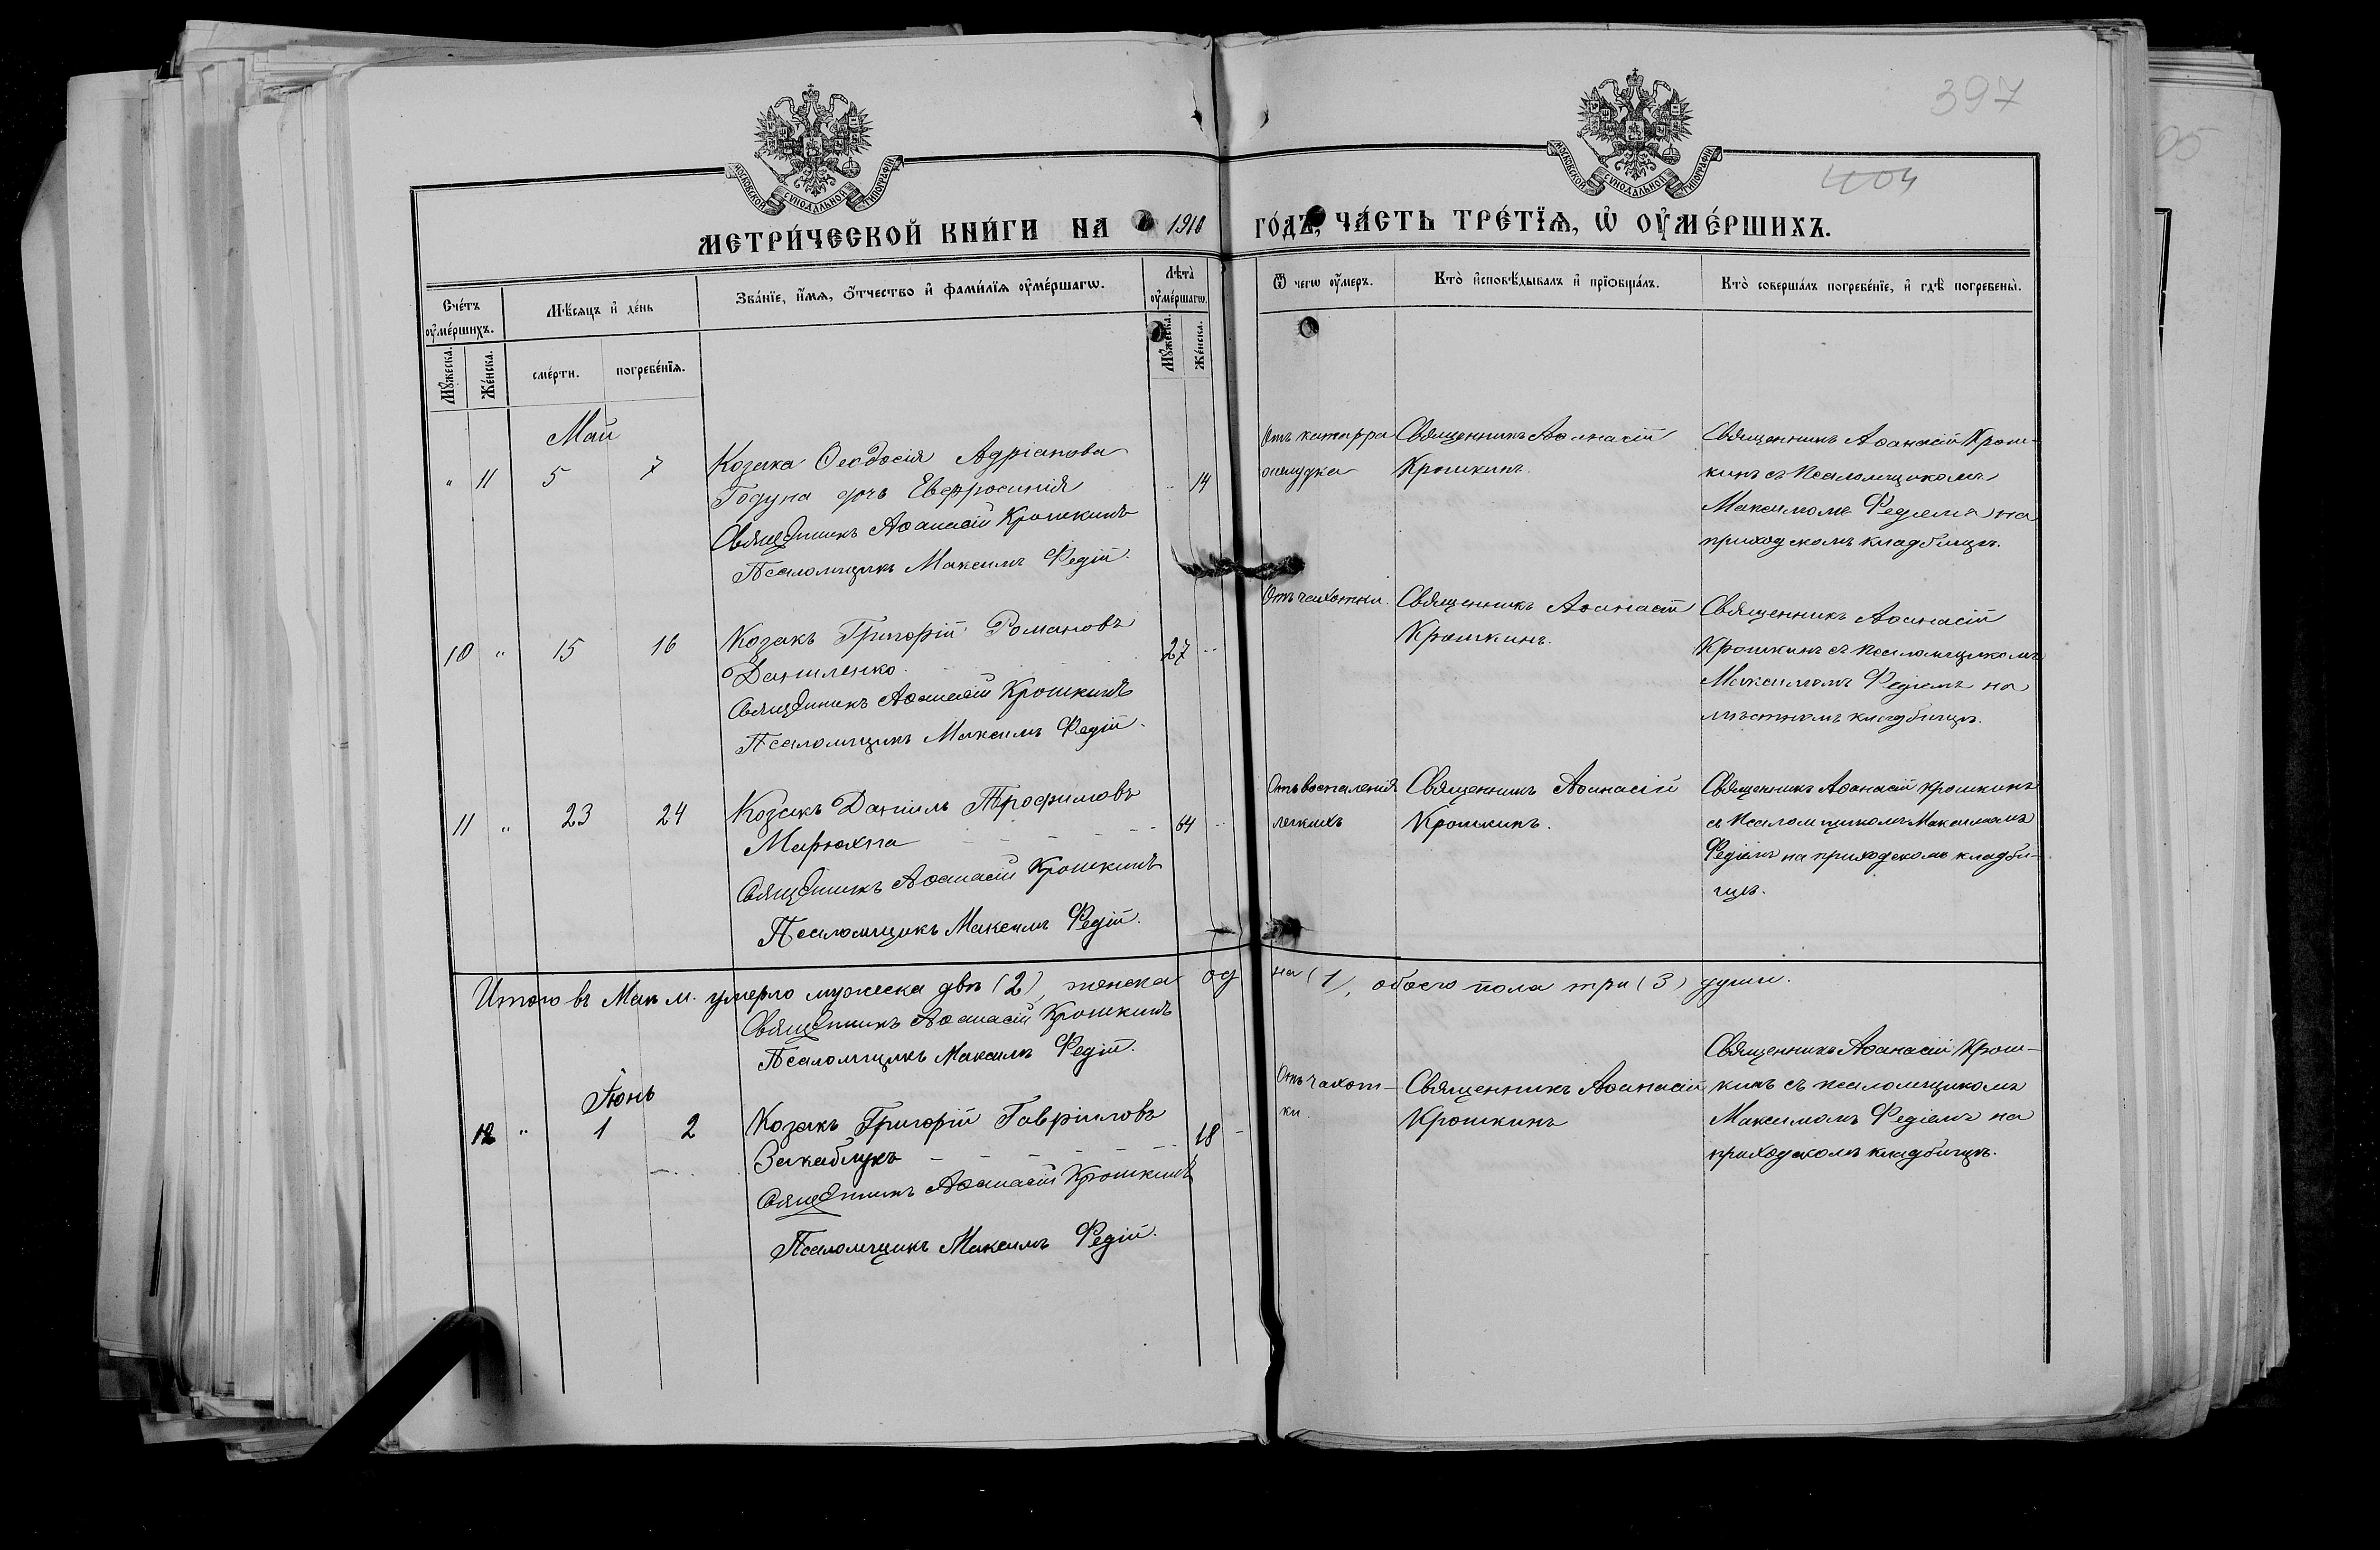 397
404
05
МОСКОВСКОЙ СѴНОДАЛЬНОЙ ТИПОГРАФІИ
МОСКОВСКОЙ СѴНОДАЛЬНОЙ ТИПОГРАФІИ
МЕТРИ́ЧЕСКОЙ КНИ́ГИ НА 1910 ГО́ДЪ, ЧА́СТЬ ТРЕ́ТІѦ, Ѡ҆ ОУ҆МЕ́РШИХЪ.
Сче́тъ оу҆ме́ршихъ.
Мѣ́сѧцъ и҆ де́нь
Зва́нїе, и҆́мѧ, ѻ҆́тчество и҆ фами́лїѧ оу҆ме́ршагѡ.
Лѣта̀ оу҆ме́ршагѡ.
Ѿ чегѡ̀ оу҆́меръ.
Кто̀ и҆сповѣ́дывалъ и҆ прїѡбща́лъ.
Кто̀ соверша́лъ погребе́нїе, и҆ гдѣ̀ погребены̀.
Мꙋ́жеска.
Же́нска.
сме́рти.
погребе́нїѧ.
Мꙋ́жеска.
Же́нска.
Май
" 11 5 7 Козака Ѳеодосія Адріанова
Годуна дочь Евфросинія 14
Священникъ Аѳанасій Крошкинъ
Псаломщикъ Максимъ Федій.
Отъ катарра
желудка
Священникъ Аѳанасій
Крошкинъ.
Священникъ Аѳанасій Крош-
кинъ съ Псаломщикомъ
Максимомъ Федіемъ на
приходскомъ кладбищѣ.
10 " 15 16 Козакъ Григорій Романовъ
Даниленко 27
Священникъ Аѳанасій Крошкинъ
Псаломщикъ Максимъ Федій.
Отъ чахотки.
Священникъ Аѳанасій
Крошкинъ.
Священникъ Аѳанасій
Крошкинъ съ псаломщикомъ
Максимомъ Федіемъ на
мѣстномъ кладбищѣ.
11 " 23 24 Козакъ Даніилъ Трофимовъ
Марюхна 64
Священникъ Аѳанасій Крошкинъ
Псаломщикъ Максимъ Федій.
Отъ воспаленія
легкихъ
Священникъ Аѳанасій
Крошкинъ.
Священникъ Аѳанасій Крошкинъ
съ Псаломщикомъ Максимомъ
Федіемъ на приходскомъ кладби-
щѣ.
Итого въ Маѣ м. умерло мужеска двѣ (2), женска одна (1), обоего пола три (3) души.
Священникъ Аѳанасій Крошкинъ
Псаломщикъ Максимъ Федій.
Іюнь
12 " 1 2 Козакъ Григорій Гавріиловъ
Закаблукъ 18
Священникъ Аѳанасій Крошкинъ
Псаломщикъ Максимъ Федій.
Отъ чахот-
ки.
Священникъ Аѳанасій
Крошкинъ
Священникъ Аѳанасій Крош-
кинъ съ псаломщикомъ
Максимомъ Федіемъ на
приходскомъ кладбищѣ.